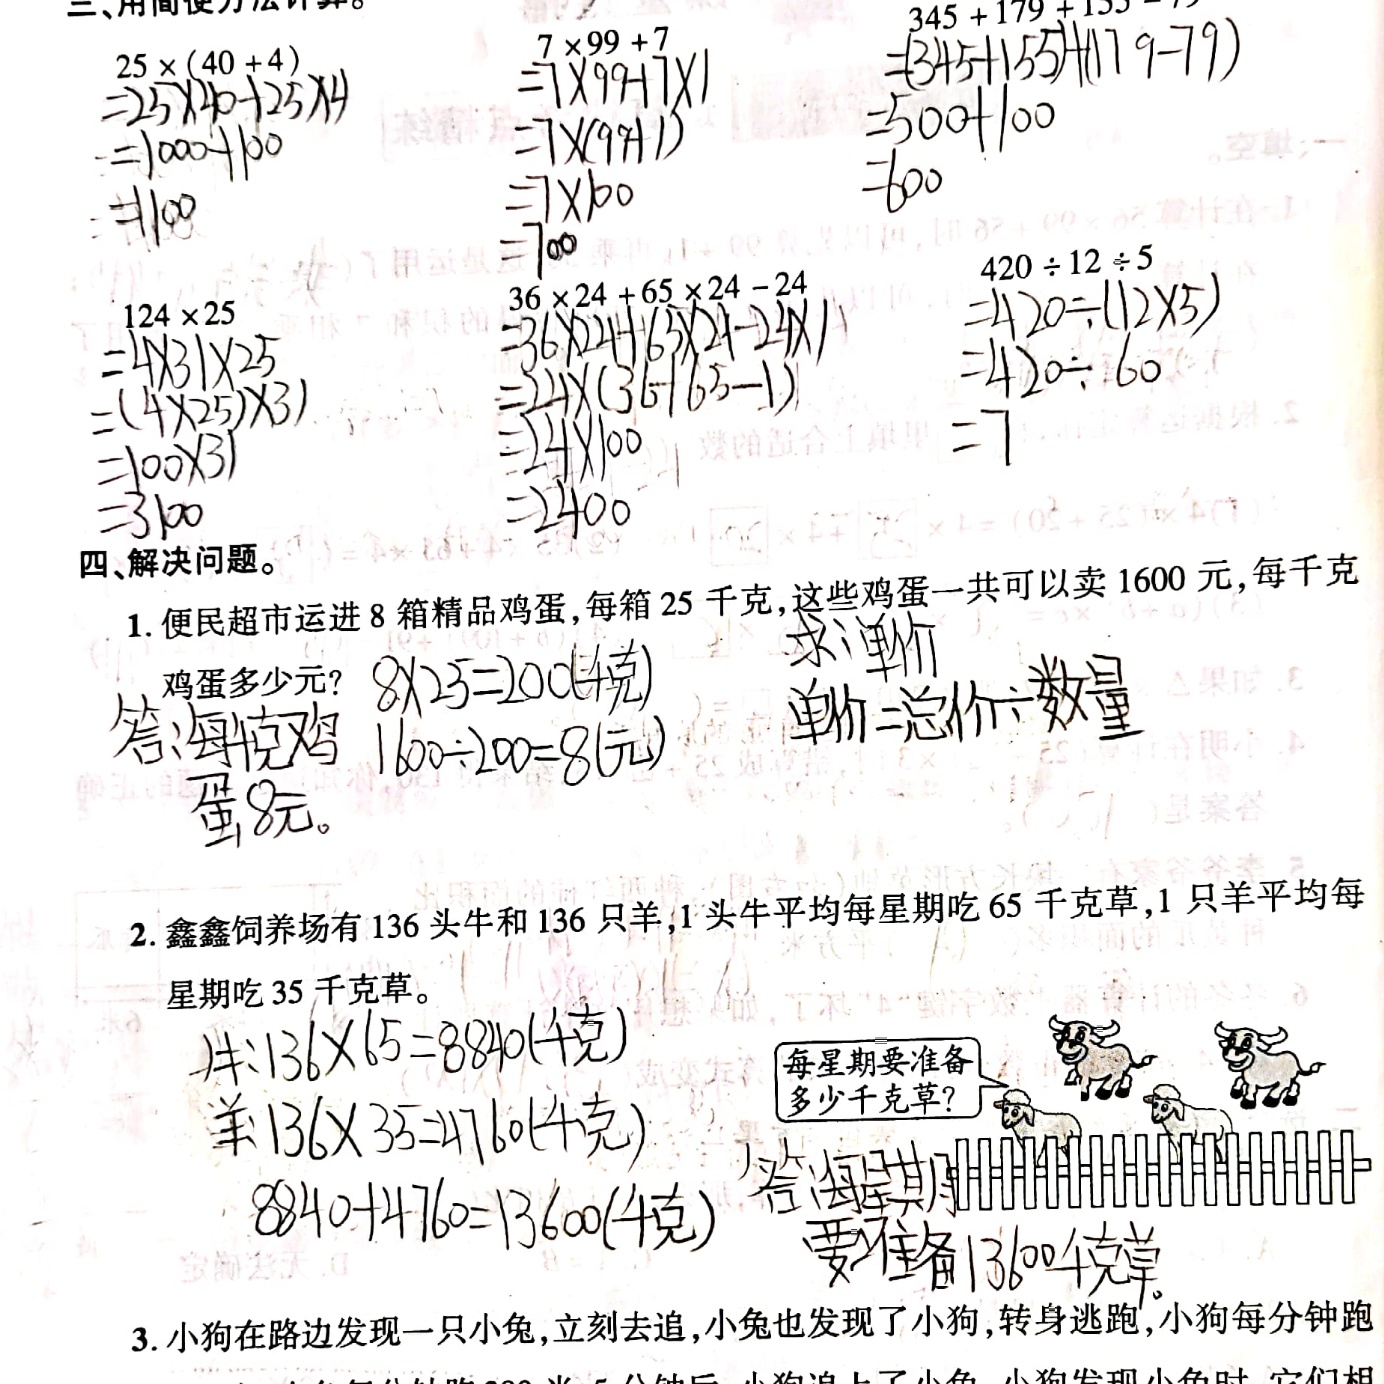 三、用简便方法计算。
25×(40+4)
=25×40+25×4
=1000+100
=1100
7×99+7
=7×99+7×1
=7×(99+1)
=7×100
=700
345+179+155-79
=(345+155)+(179-79)
=500+100
=600
124×25
=4×31×25
=(4×25)×31
=100×31
=3100
36×24+65×24-24
=36×24+65×24-24×1
=24×(36+65-1)
=24×100
=2400
420÷12÷5
=420÷(12×5)
=420÷60
=7
四、解决问题。
1. 便民超市运进8箱精品鸡蛋,每箱25千克,这些鸡蛋一共可以卖1600元,每千克
鸡蛋多少元?
8×25=200(千克)
1600÷200=8(元)
答:每千克鸡
蛋8元。
求:单价
单价=总价÷数量
2. 鑫鑫饲养场有136头牛和136只羊,1头牛平均每星期吃65千克草,1只羊平均每
星期吃35千克草。
牛:136×65=8840(千克)
羊:136×35=4760(千克)
8840+4760=13600(千克)
每星期要准备
多少千克草?
答:每星期
要准备13600千克草。
3. 小狗在路边发现一只小兔,立刻去追,小兔也发现了小狗,转身逃跑,小狗每分钟跑